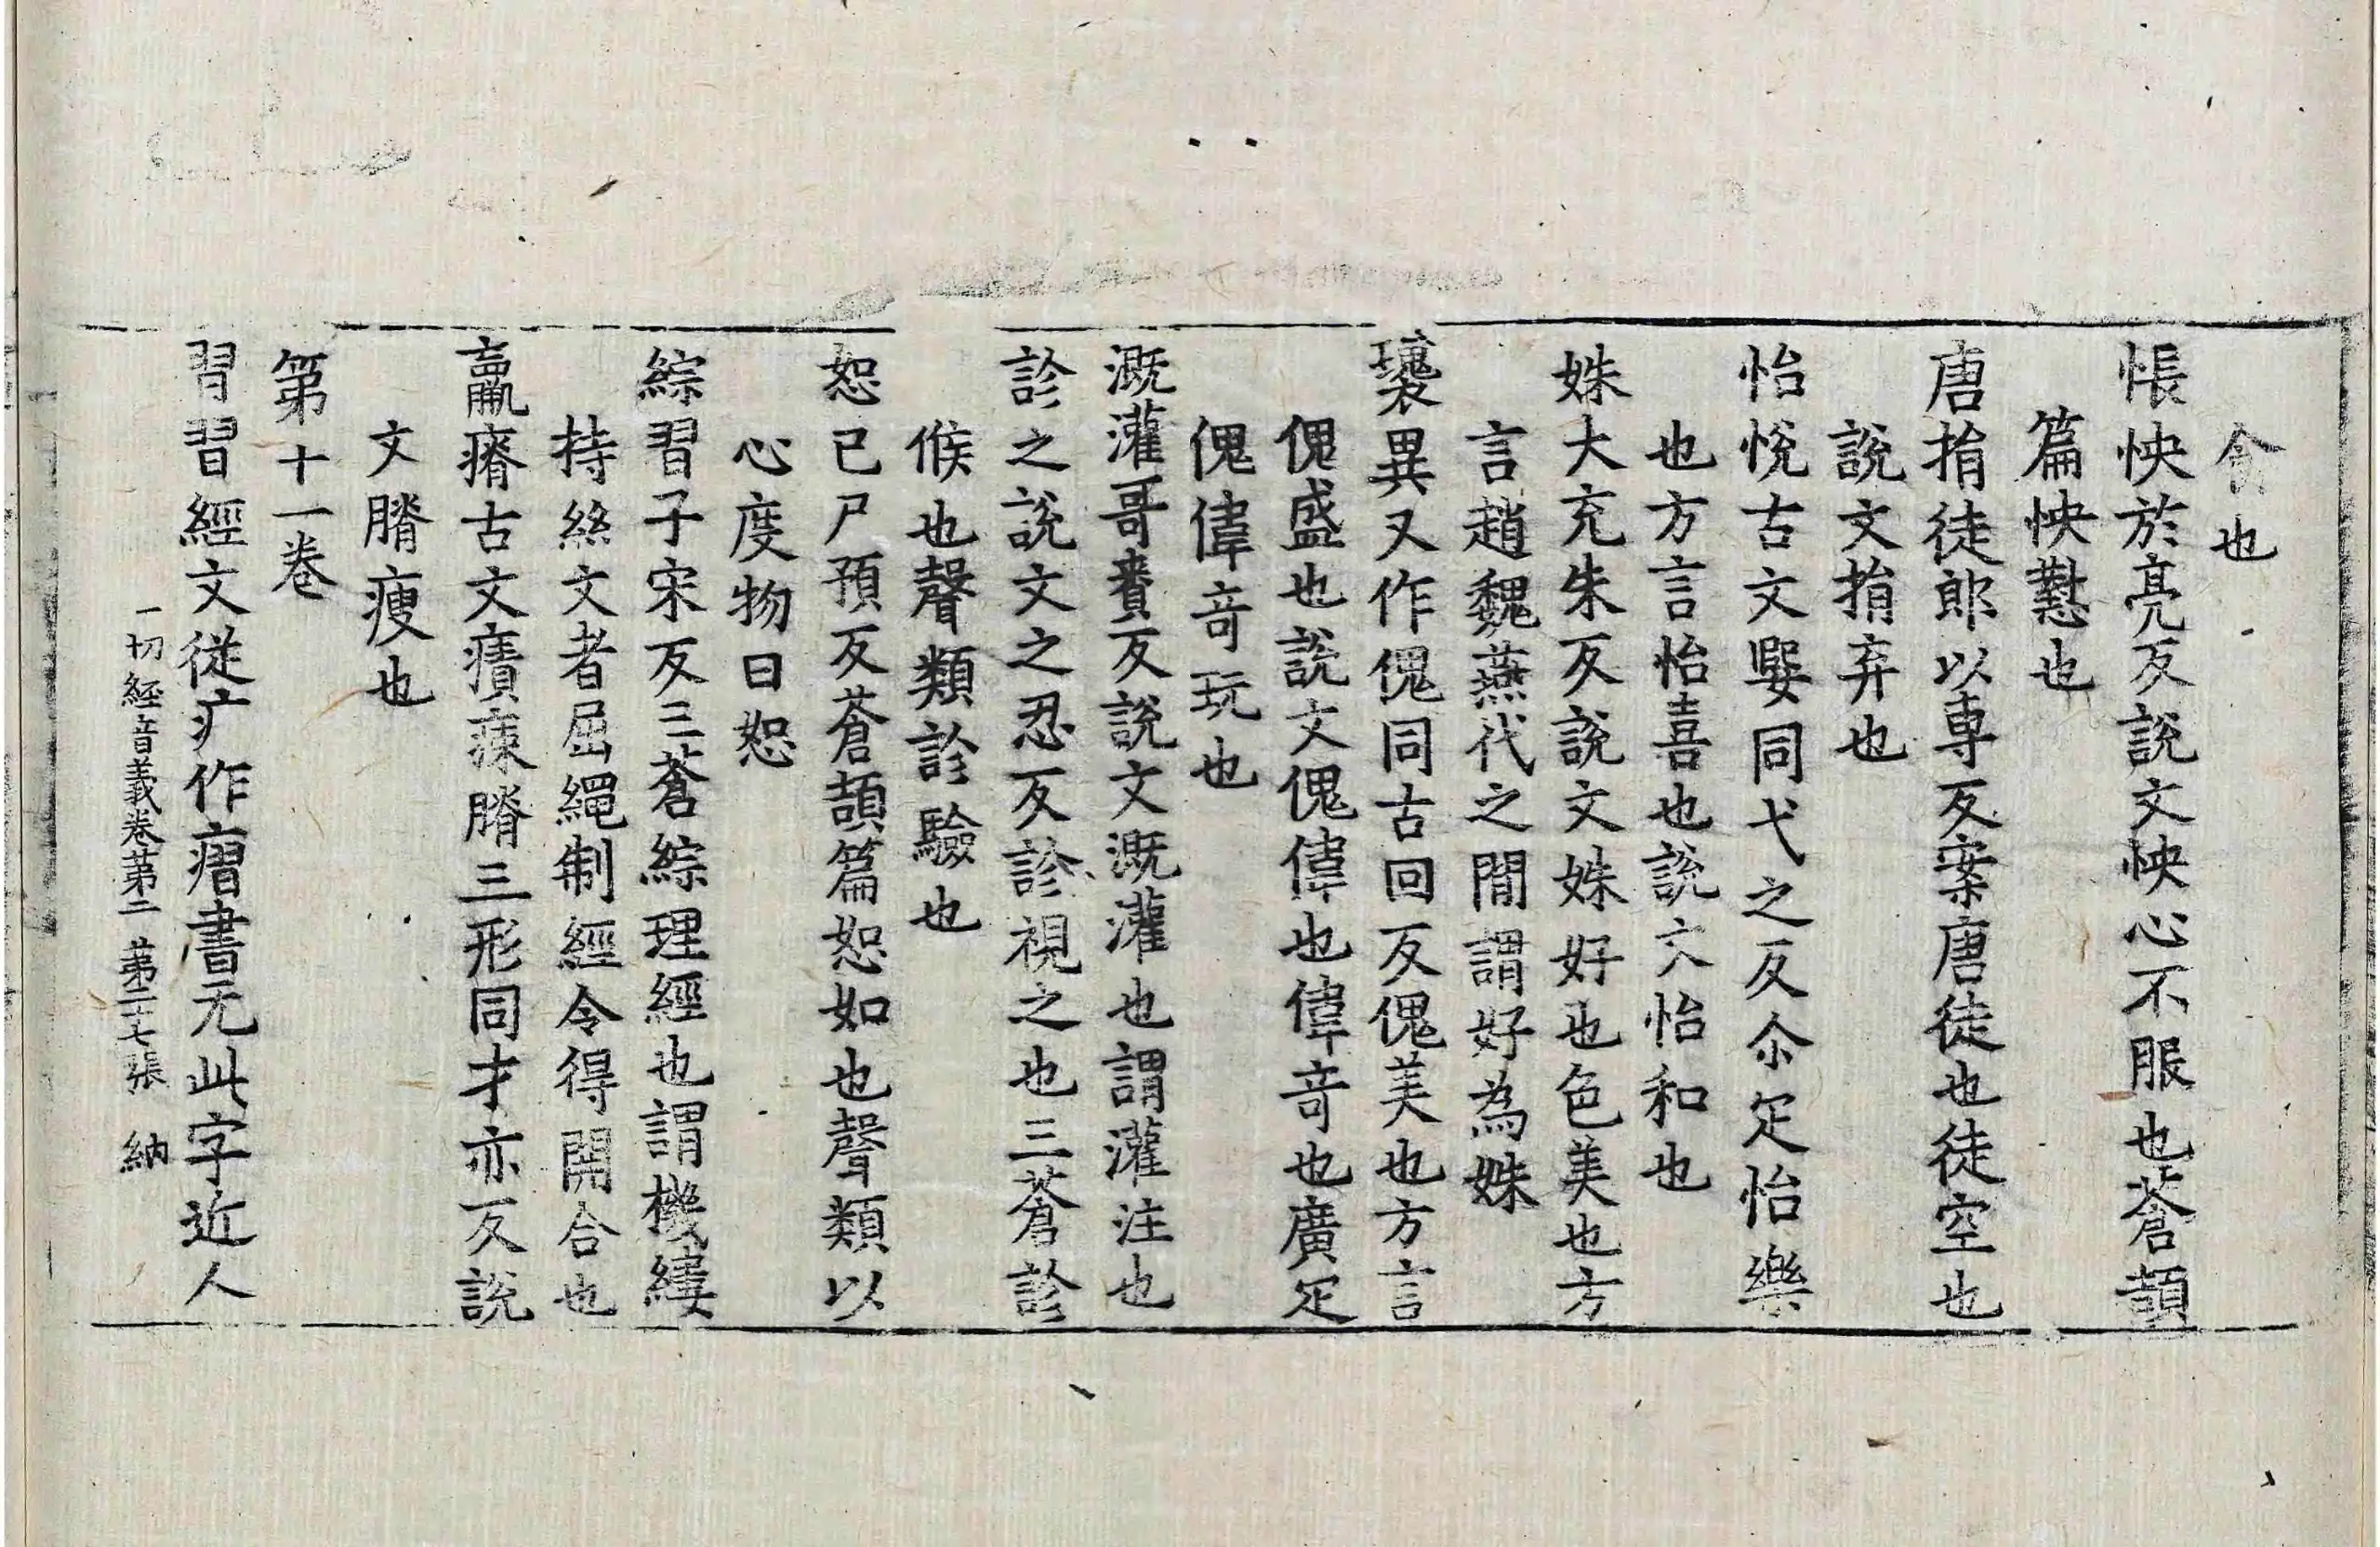 食也
悵怏於亮反說文怏心不服也蒼頡
篇怏懟也
唐捐徒郎以專反案唐徒也徒空也
說文捐弃也
怡悅古文嬰同弋之反尒疋怡樂
也方言怡喜也說文怡和也
姝大充朱反說文姝好也色美也方
言趙魏燕代之閒謂好為姝
瓌異又作傀同古回反傀美也方言
傀盛也說文傀偉也偉竒也廣疋
傀偉竒玩也
溉灌哥賚反說文溉灌也謂灌注也
診之說文之忍反診視之也三蒼診
候也聲類診驗也
恕已尸預反蒼頡篇恕如也聲類以
心度物曰恕
綜習子宋反三蒼綜理經也謂機縷
持絲文者屈繩制經令得開合也
羸瘠古文㾊𤵸膌三形同才亦反說
文膌瘦也
第十一卷
習習經文從疒作㿇書无此字近人
一切經音義卷第二 第二十七張 納